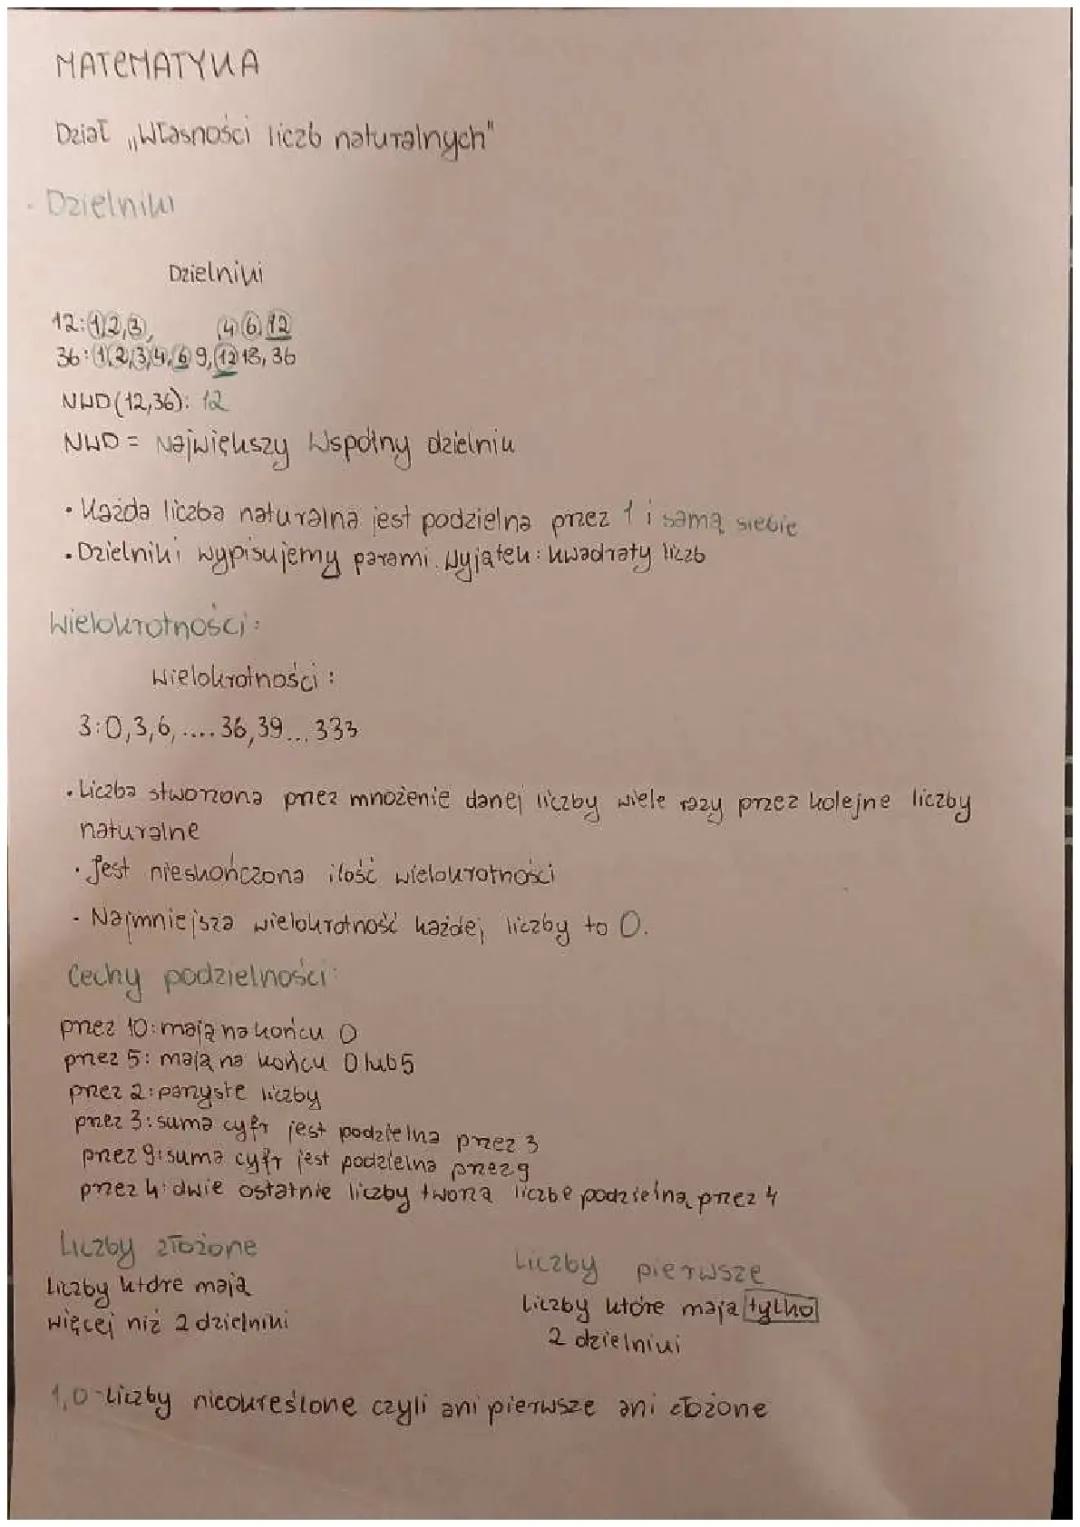 MATEMATYKA
Dział „Własności liczb naturalnych"
- Dzielniki
Dzielniki
12: 1, 2, 3, 4, 6, 12
36: 1, 2, 3, 4, 6, 9, 12, 18, 36
NWD (12,36): 12
NWD = Największy Wspólny dzielnik
• Każda liczba naturalna jest podzielna przez 1 i samą siebie
• Dzielniki wypisujemy parami. Wyjątek: kwadraty liczb
Wielokrotności:
Wielokrotności:
3: 0, 3, 6, .... 36, 39 ... 333
• Liczba stworzona przez mnożenie danej liczby wiele razy przez kolejne liczby
naturalne
• Jest nieskończona ilość wielokrotności
- Najmniejsza wielokrotność każdej liczby to 0.
Cechy podzielności:
przez 10: mają na końcu 0
przez 5: mają na końcu 0 lub 5
przez 2: parzyste liczby
przez 3: suma cyfr jest podzielna przez 3
przez 9: suma cyfr jest podzielna przez 9
przez 4: dwie ostatnie liczby tworzą liczbe podzielną przez 4
Liczby złożone
Liczby które mają
więcej niż 2 dzielniki
Liczby pierwsze
Liczby które mają tylko
2 dzielniki
1,0 - Liczby nieokreślone czyli ani pierwsze ani złożone